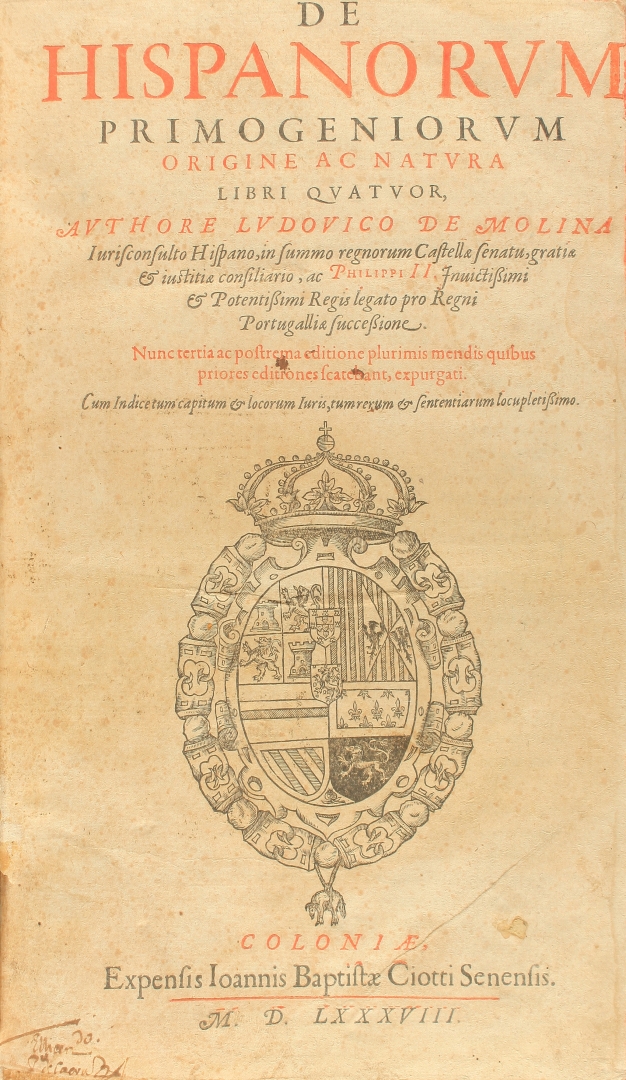 DE
HISPANORVM
PRIMOGENIORVM
ORIGINE AC NATVRA
LIBRI QVATVOR,
AVTHORE LVDOVICO DE MOLINA
Iuriſconſulto Hiſpano, in ſummo regnorum Caſtellæ ſenatu, gratiæ
& iuſtitiæ conſiliario, ac PHILIPPI II. Inuictißimi
& Potentißimi Regis legato pro Regni
Portugalliæ ſucceßione.
Nunc tertia ac poſtrema editione plurimis mendis quibus
priores editiones ſcatebant, expurgati.
Cum Indice tum capitum & locorum Iuris, tum rerum & ſententiarum locupletißimo.
COLONIÆ,
Expenſis Ioannis Baptiſtæ Ciotti Senenſis.
M. D. LXXXVIII.